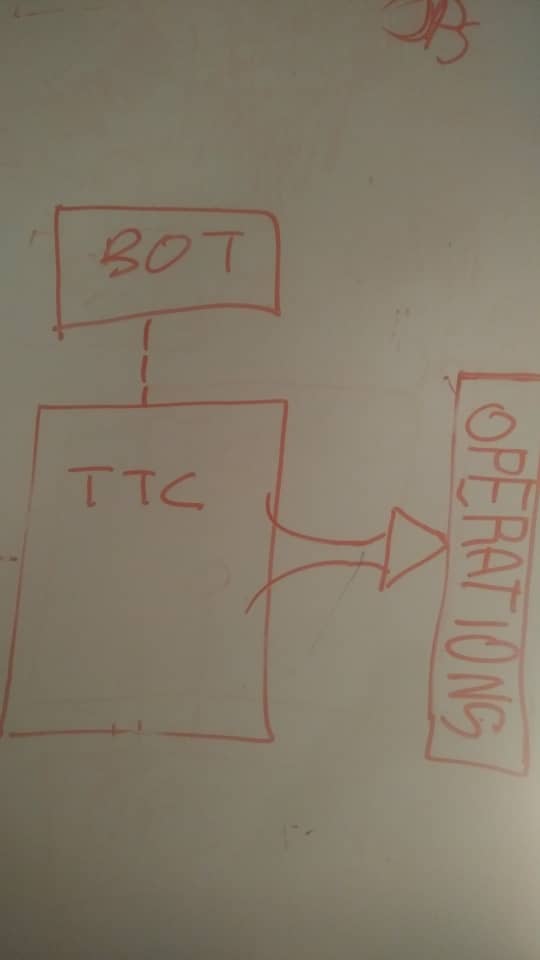 BOT
TTC
OPERATIONS